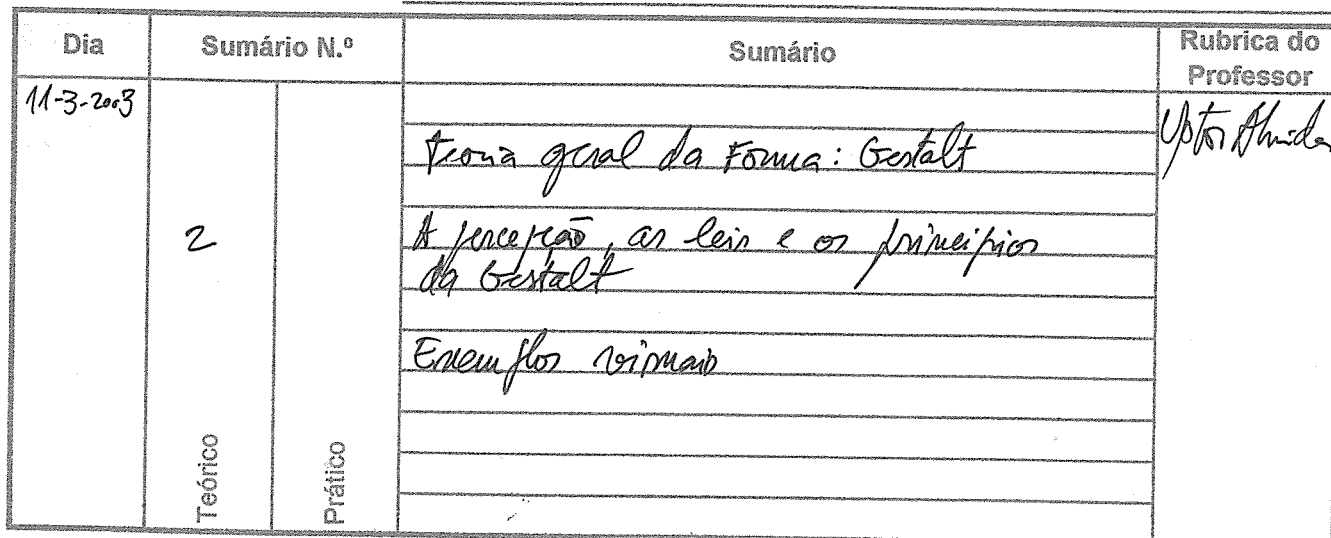 Dia
Sumário N.º
Sumário
Rubrica do
Professor
11-3-2003
Teoria geral da Forma: Gestalt
2
A percepção, as leis e os princípios
da Gestalt
Exemplos visuais
Teórico
Prático
Almeida